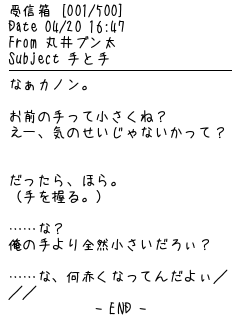 受信箱 [001/500]
Date 04/20 16:47
From 丸井ブン太
Subject 手と手
なぁカノン。
お前の手って小さくね?
えー、気のせいじゃないかって?
だったら、ほら。
(手を握る。)
……な?
俺の手より全然小さいだろぃ?
……な、何赤くなってんだよぃ/
//
- END -